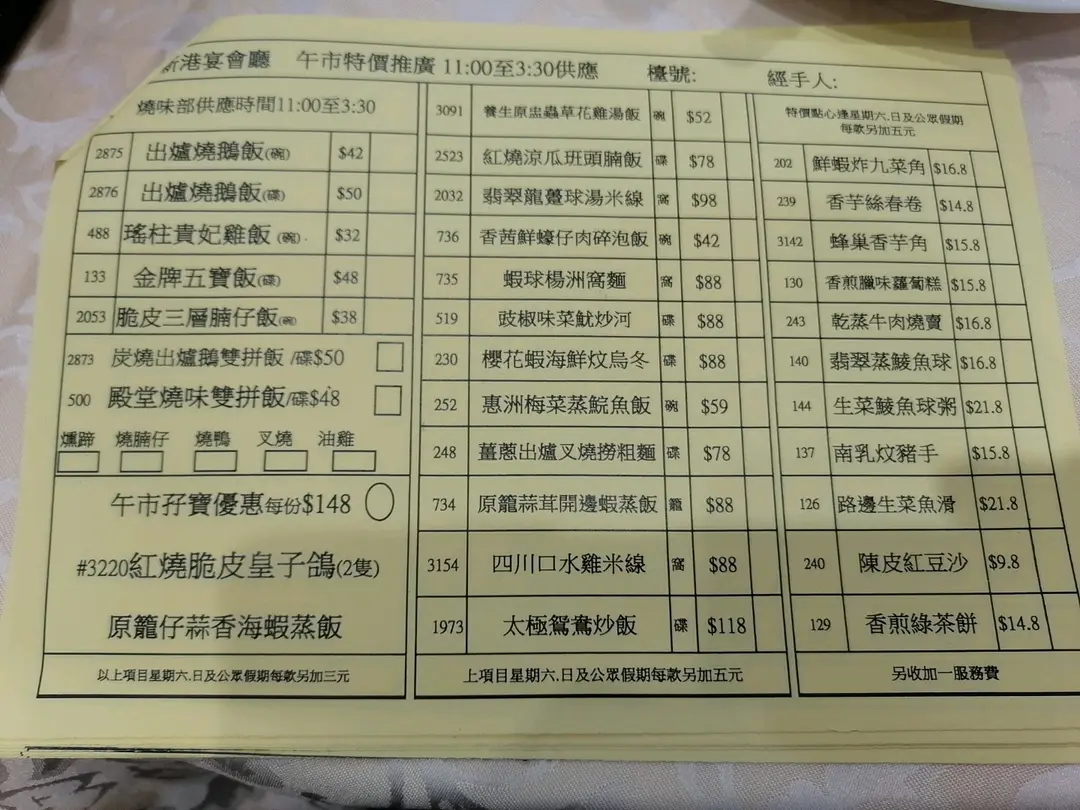 新港宴會廳 午市特價推廣 11:00至3:30供應 檯號: 經手人:
燒味部供應時間11:00至3:30
2875 出爐燒鵝飯(碗) $42
2876 出爐燒鵝飯(碟) $50
488 瑤柱貴妃雞飯(碗) $32
133 金牌五寶飯(碟) $48
2053 脆皮三層腩仔飯(碗) $38
2873 炭燒出爐鵝雙拼飯/碟$50
500 殿堂燒味雙拼飯/碟$48
燻蹄 燒腩仔 燒鴨 叉燒 油雞
午市孖寶優惠每份$148
#3220紅燒脆皮皇子鴿(2隻)
原籠仔蒜香海蝦蒸飯
以上項目星期六.日及公眾假期每款另加三元
3091 養生原盅蟲草花雞湯飯 碗 $52
2523 紅燒涼瓜班頭腩飯 碟 $78
2032 翡翠龍躉球湯米線 窩 $98
736 香茜鮮蠔仔肉碎泡飯 碗 $42
735 蝦球楊洲窩麵 窩 $88
519 豉椒味菜魷炒河 碟 $88
230 櫻花蝦海鮮炆烏冬 碟 $88
252 惠洲梅菜蒸鯇魚飯 碗 $59
248 薑蔥出爐叉燒撈粗麵 碟 $78
734 原籠蒜茸開邊蝦蒸飯 籠 $88
3154 四川口水雞米線 窩 $88
1973 太極鴛鴦炒飯 碟 $118
上項目星期六.日及公眾假期每款另加五元
特價點心逢星期六.日及公眾假期
每款另加五元
202 鮮蝦炸九菜角 $16.8
239 香芋絲春卷 $14.8
3142 蜂巢香芋角 $15.8
130 香煎臘味蘿蔔糕 $15.8
243 乾蒸牛肉燒賣 $16.8
140 翡翠蒸鯪魚球 $16.8
144 生菜鯪魚球粥 $21.8
137 南乳炆豬手 $15.8
126 路邊生菜魚滑 $21.8
240 陳皮紅豆沙 $9.8
129 香煎綠茶餅 $14.8
另收加一服務費